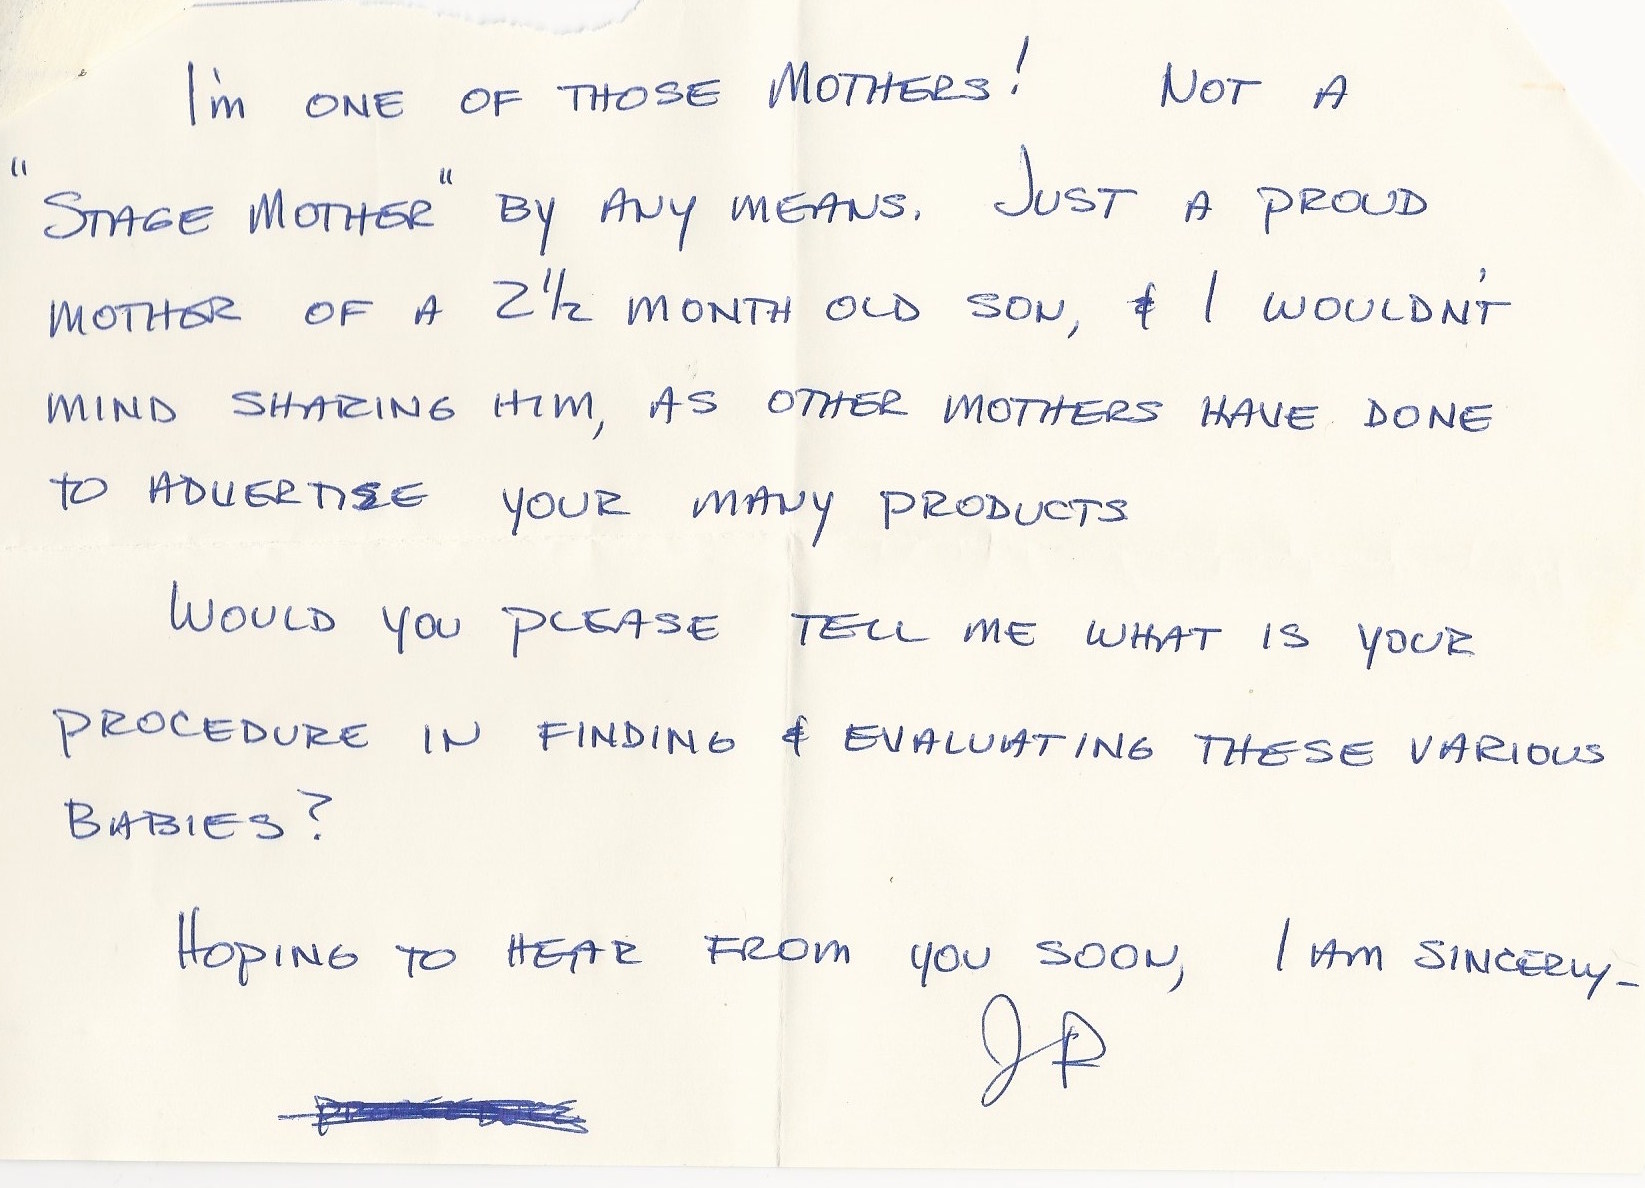 I'm ONE OF THOSE MOTHERS! NOT A
"STAGE MOTHER" BY ANY MEANS. JUST A PROUD
MOTHER OF A 2 1/2 MONTH OLD SON, & I WOULDN'T
MIND SHARING HIM, AS OTHER MOTHERS HAVE DONE
TO ADVERTISE YOUR MANY PRODUCTS
WOULD YOU PLEASE TELL ME WHAT IS YOUR
PROCEDURE IN FINDING & EVALUATING THESE VARIOUS
BABIES?
HOPING TO HEAR FROM YOU SOON, I AM SINCERLY-
JR